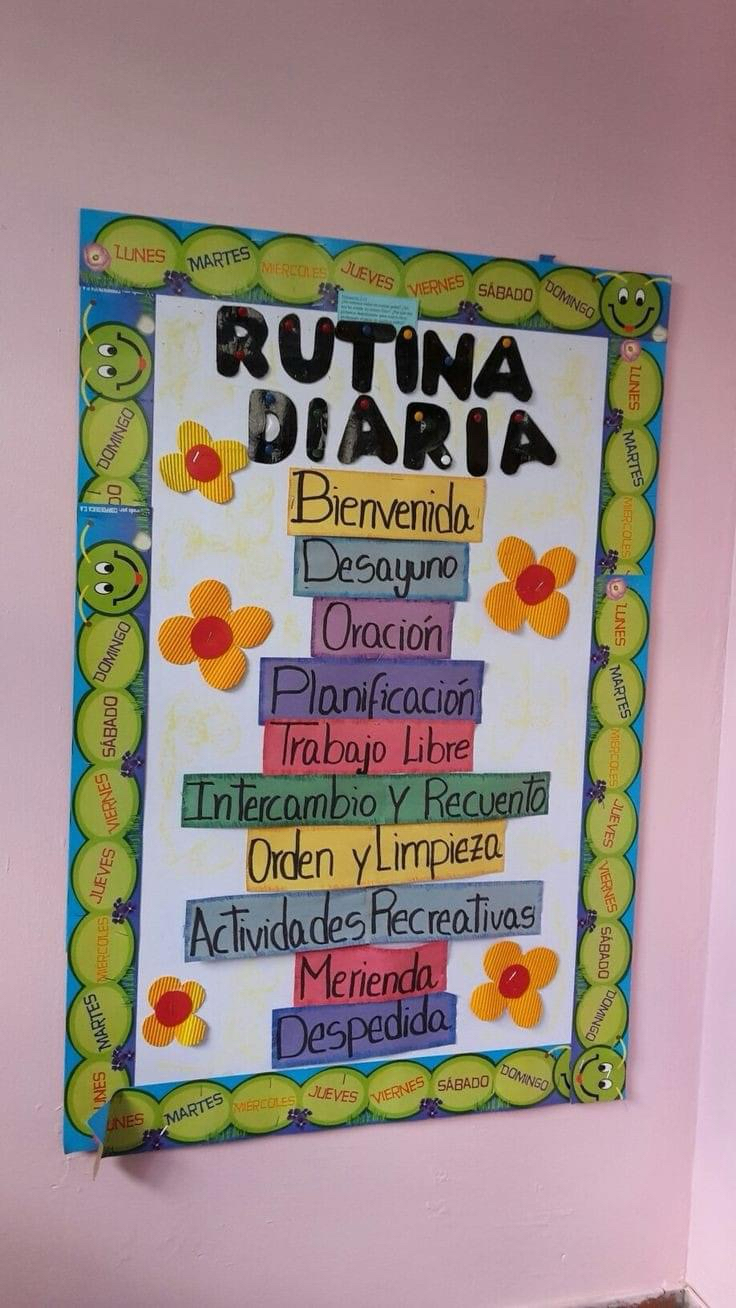 LUNES MARTES MIERCOLES JUEVES VIERNES SÁBADO DOMINGO
RUTINA
DIARIA
Bienvenida
Desayuno
Oración
Planificación
Trabajo Libre
Intercambio Y Recuento
Orden y Limpieza
Actividades Recreativas
Merienda
Despedida
DOMINGO
DO
DOMINGO
SÁBADO
VIERNES
JUEVES
MIERCOLES
MARTES
LUNES
LUNES
MARTES
MIERCOLES
LUNES
MARTES
MIERCOLES
JUEVES
VIERNES
SÁBADO
DOMINGO
UNES MARTES MIERCOLES JUEVES VIERNES SÁBADO DOMINGO